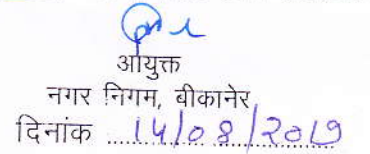 आयुक्त
नगर निगम, बीकानेर
दिनांक 14/08/2019